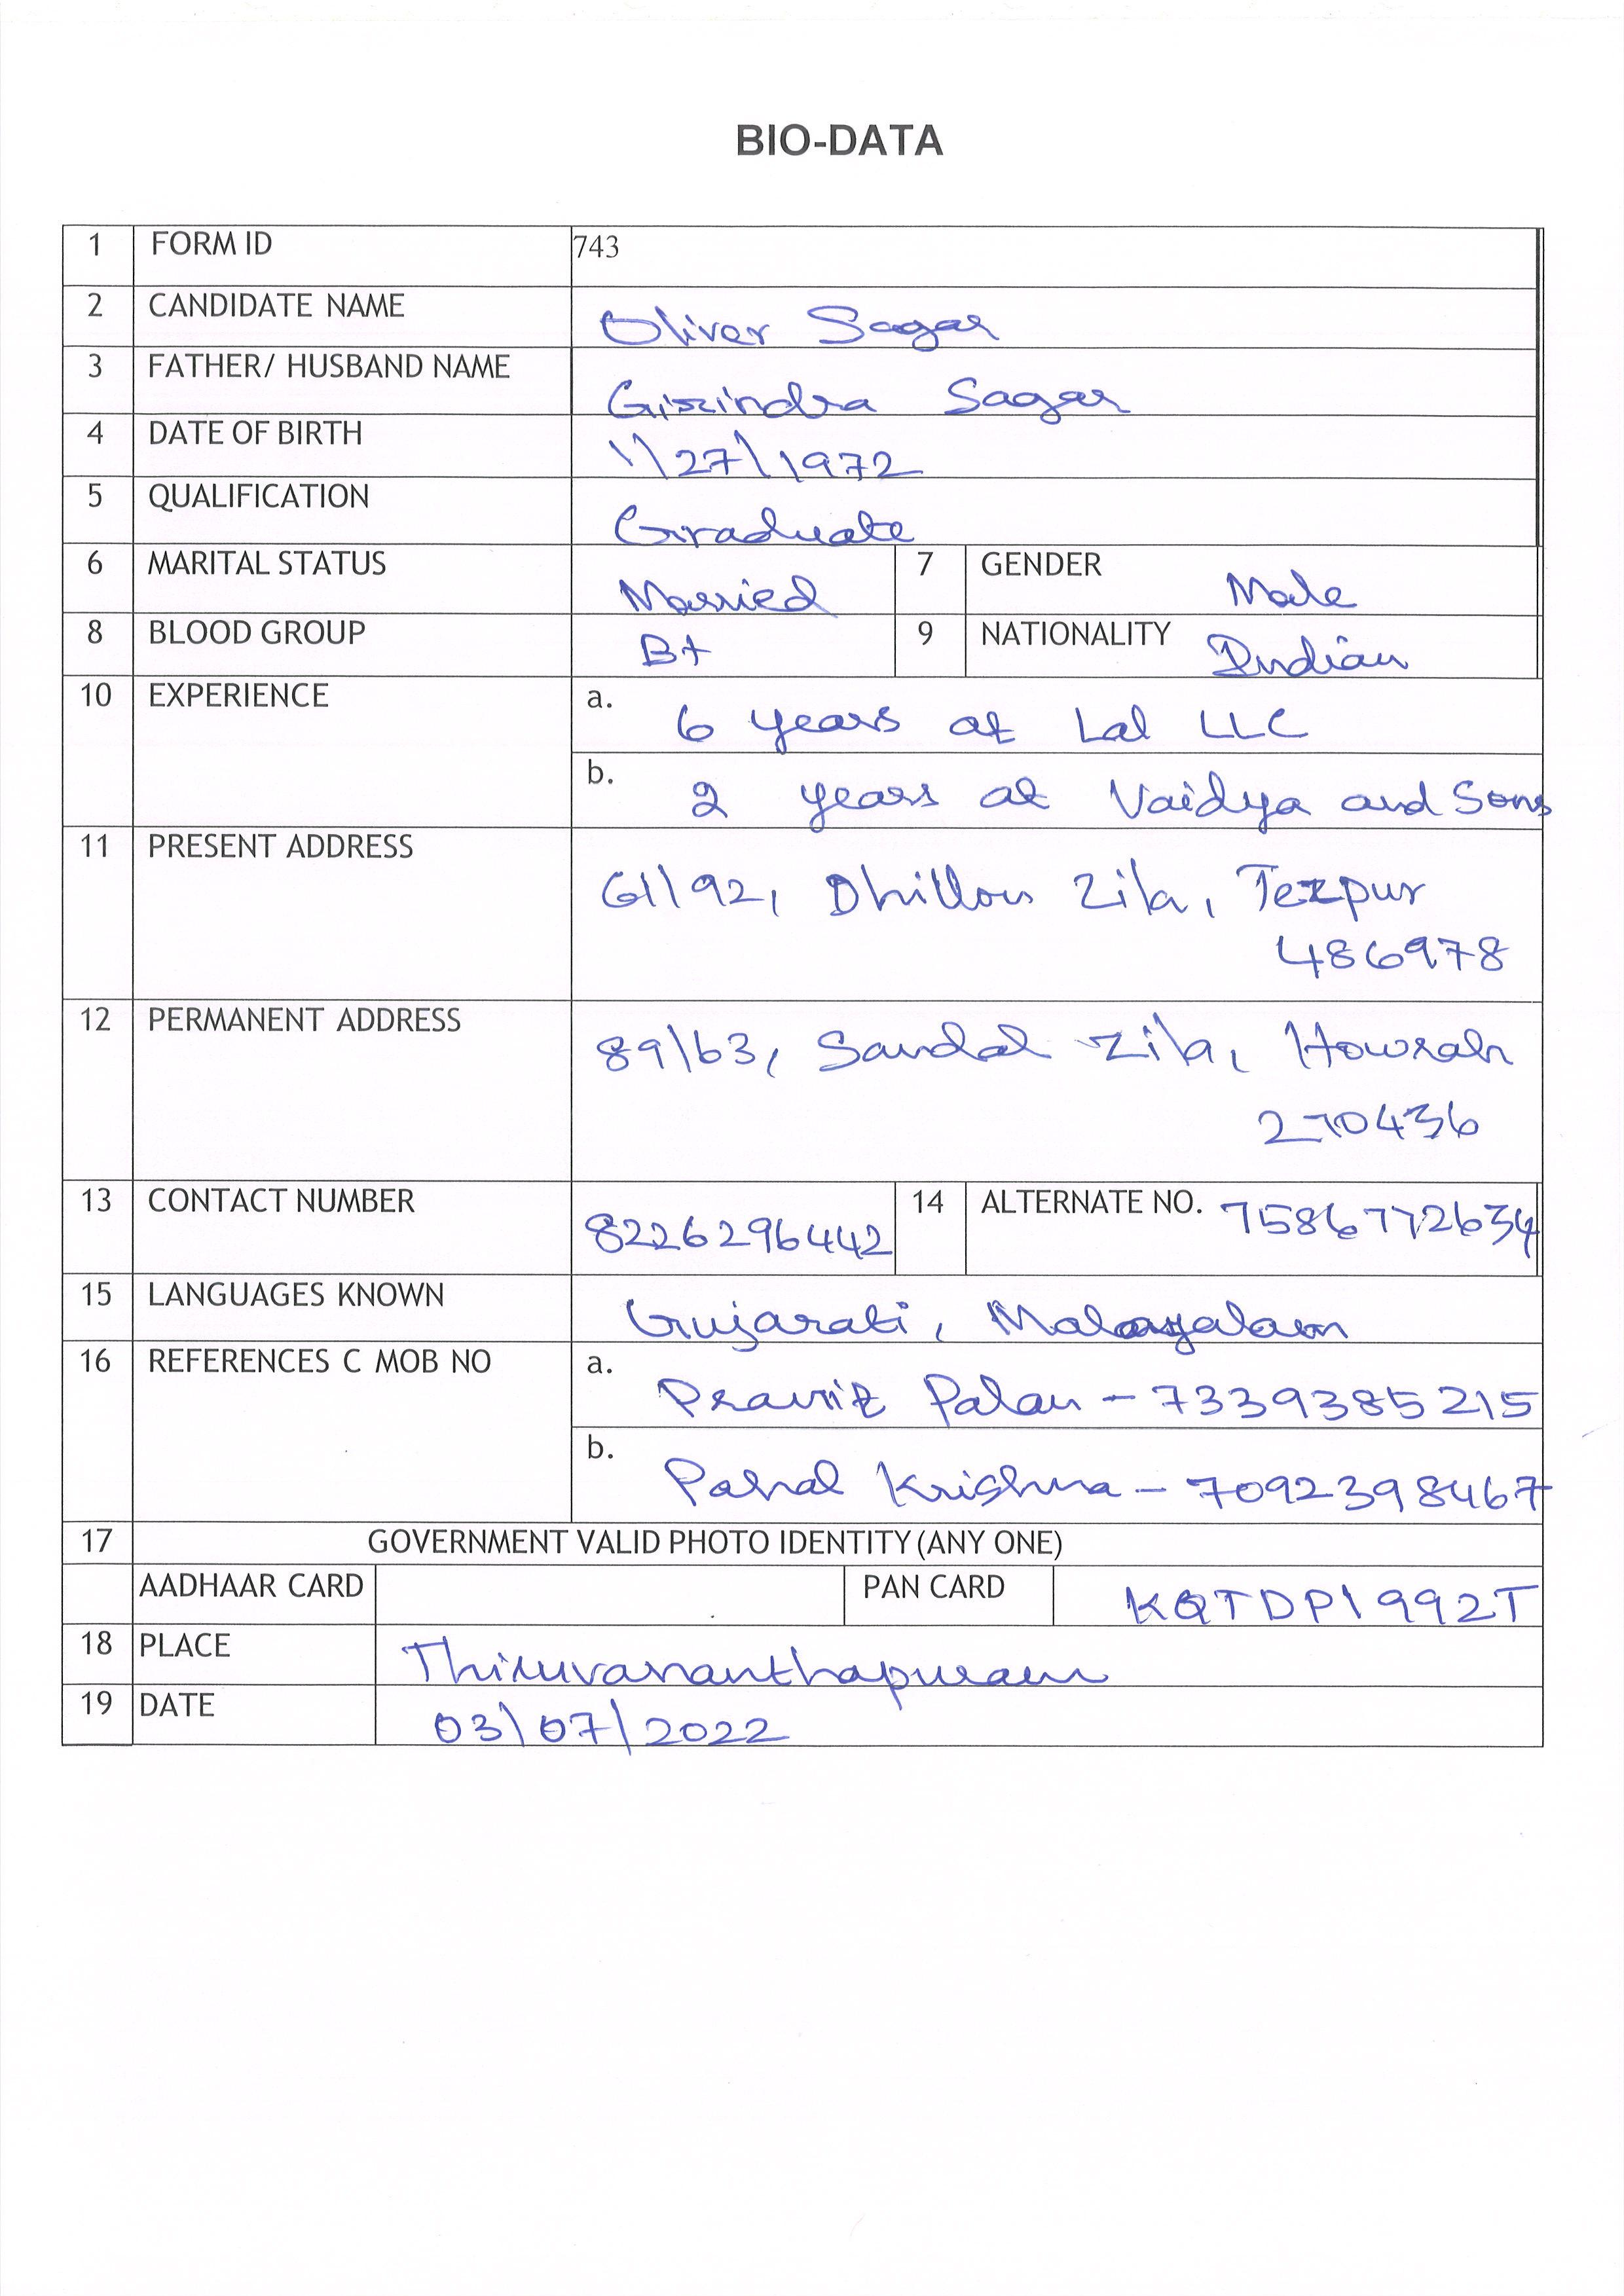 BIO-DATA
1 FORM ID 743
2 CANDIDATE NAME Oliver Sagar
3 FATHER/ HUSBAND NAME Girindra Sagar
4 DATE OF BIRTH 1/27/1972
5 QUALIFICATION Graduate
6 MARITAL STATUS Married 7 GENDER Male
8 BLOOD GROUP B+ 9 NATIONALITY Indian
10 EXPERIENCE a. 6 years at Lal LLC
b. 2 years at Vaidya and Sons
11 PRESENT ADDRESS 61/92, Dhillon Zila, Tezpur
486978
12 PERMANENT ADDRESS 89/63, Sandal Zila, Howrah
270436
13 CONTACT NUMBER 8226296442 14 ALTERNATE NO. 7586772634
15 LANGUAGES KNOWN Gujarati, Malayalam
16 REFERENCES C MOB NO a. Pranit Palan - 7339385215
b. Pahal Krishna - 7092398467
17 GOVERNMENT VALID PHOTO IDENTITY (ANY ONE)
AADHAAR CARD PAN CARD KQTDP1992T
18 PLACE Thiruvananthapuram
19 DATE 03/07/2022